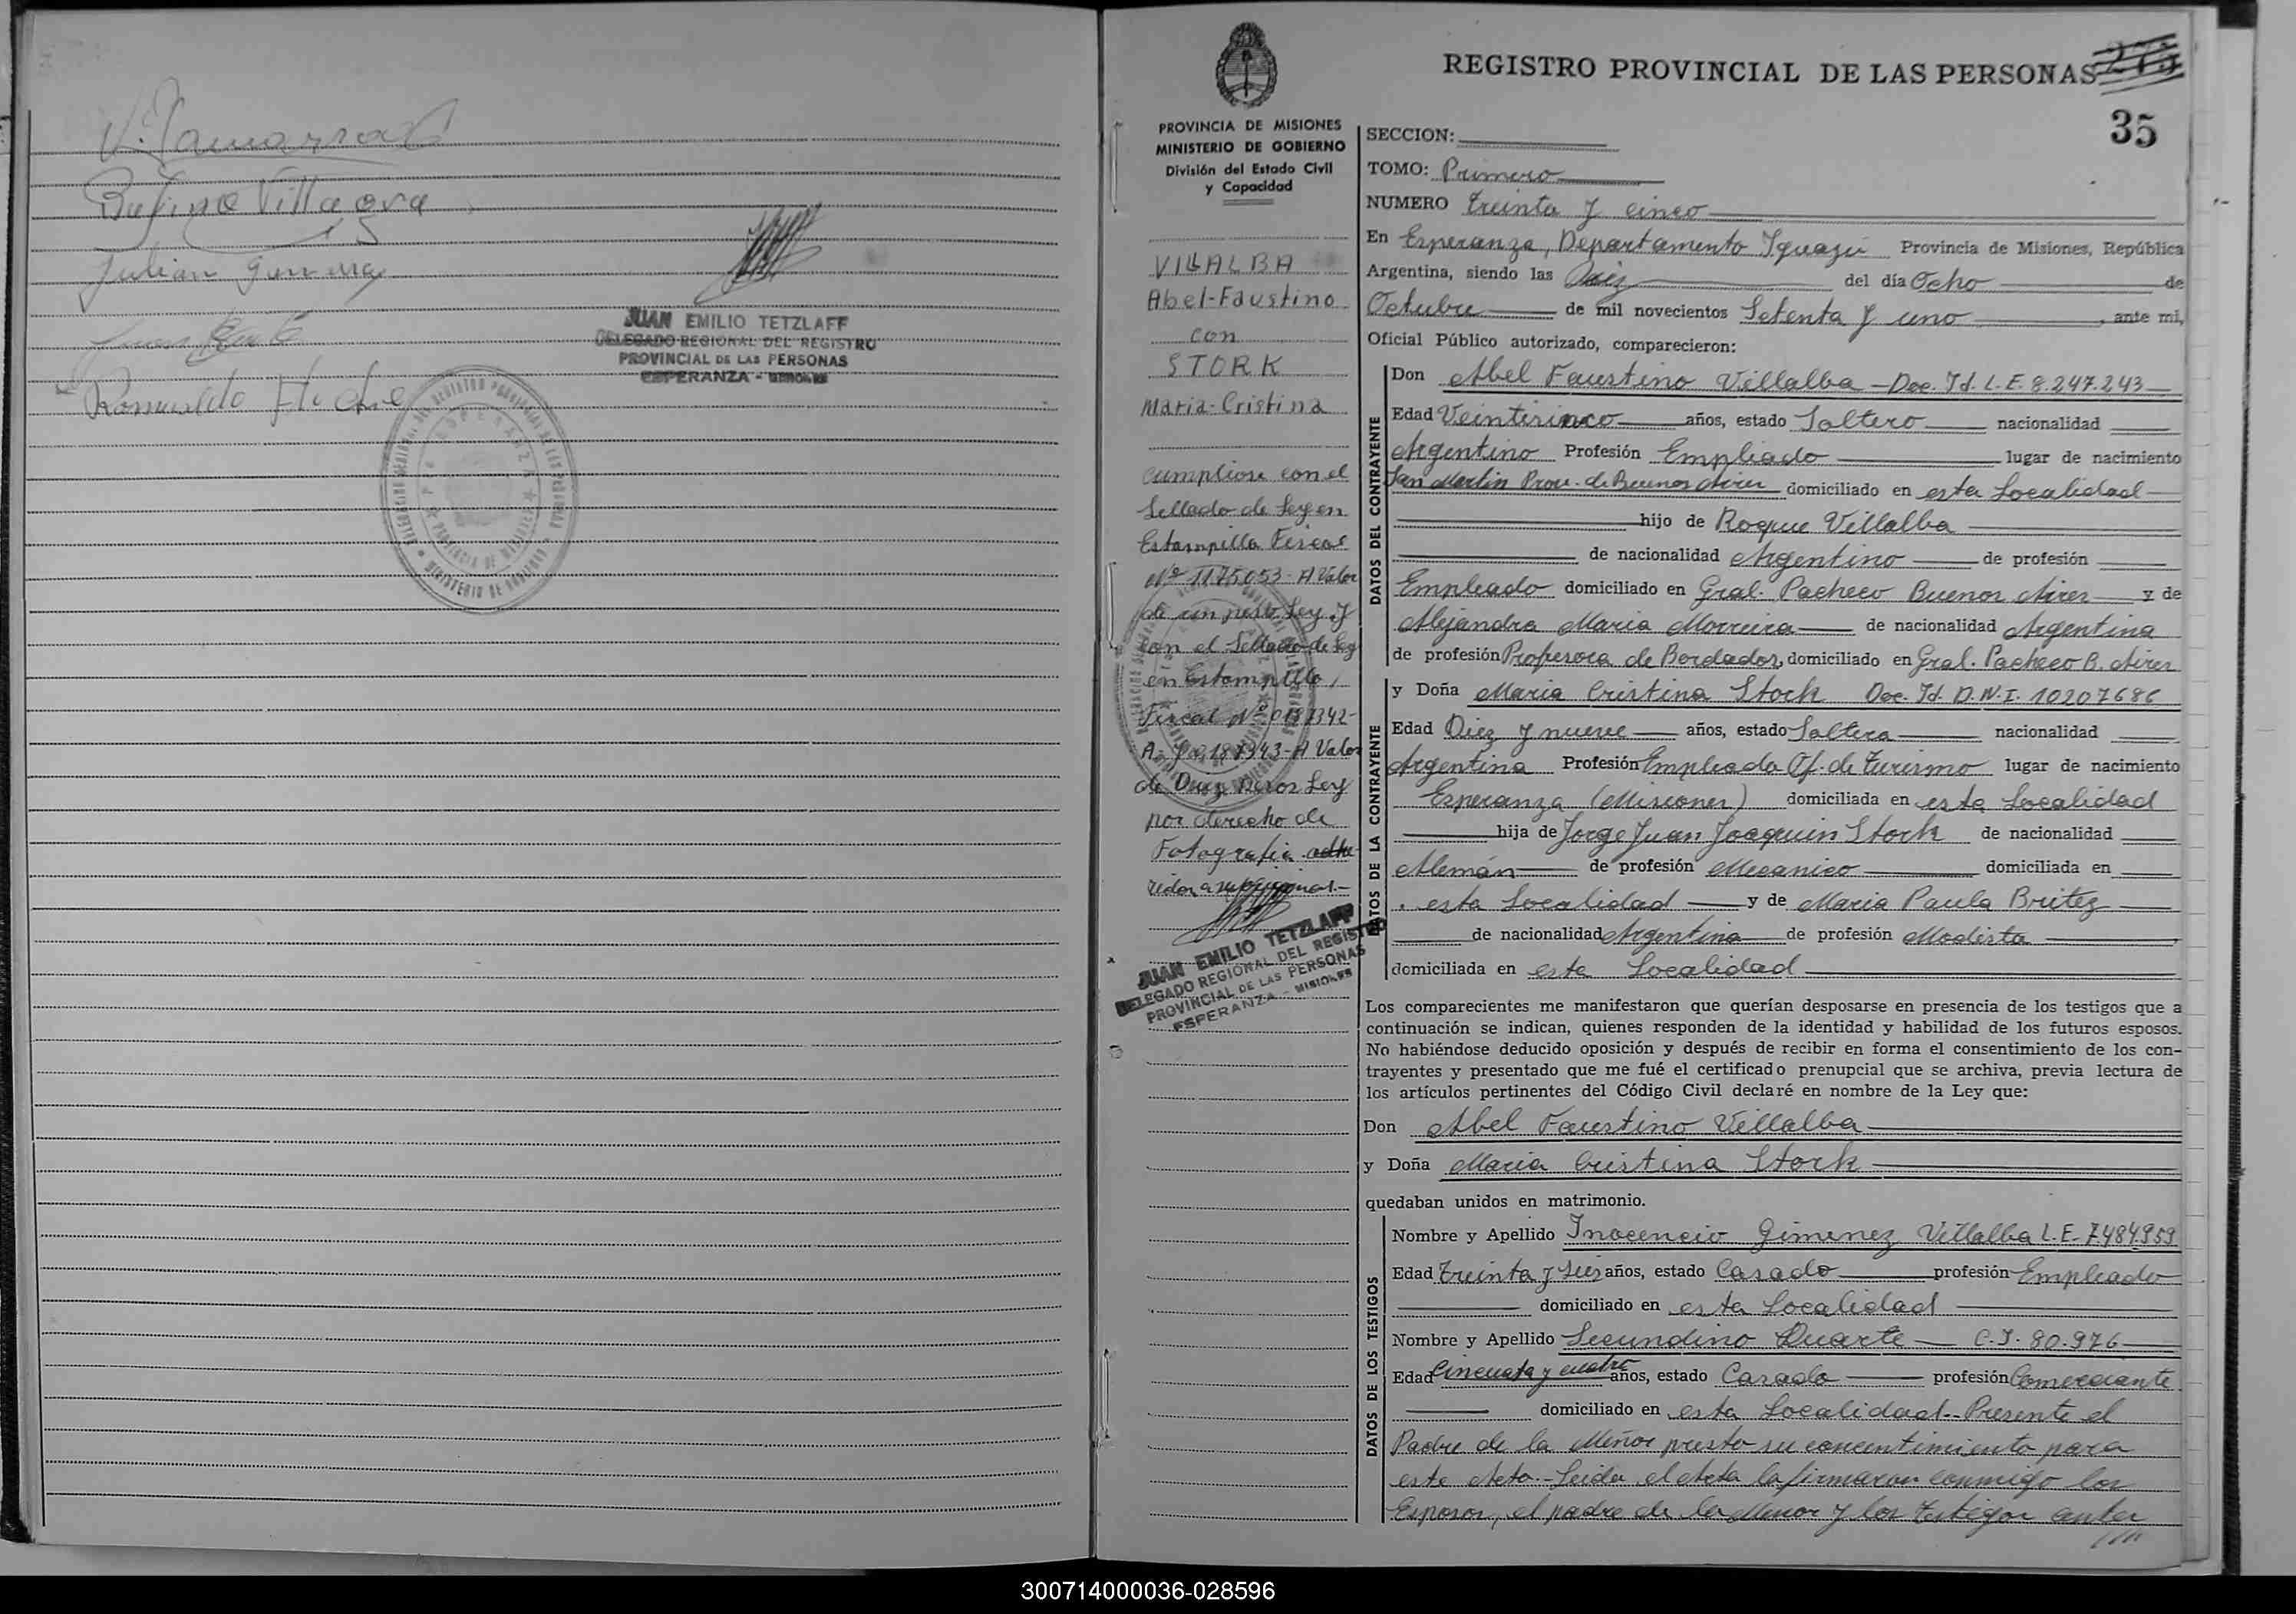 V. Gamarra
Rufino Villagra
Julian
Romualdo
JUAN EMILIO TETZLAFF
DELEGADO REGIONAL DEL REGISTRO
PROVINCIAL DE LAS PERSONAS
ESPERANZA - MISIONES
PROVINCIA DE MISIONES
MINISTERIO DE GOBIERNO
División del Estado Civil
y Capacidad
VILLALBA
Abel-Faustino
con
STORK
Maria-Cristina
Cumpliose con el
Sellado de Ley en
Estampilla Fiscal
Nº 1175053-A Valor
de un peso Ley y
con el Sellado de Ley
en Estampilla
Fiscal Nº 0187342-
A- y 0187343-A Valor
de Diez pesos Ley
por derecho de
Fotografia adhe
ridas a su original.-
JUAN EMILIO TETZLAFF
DELEGADO REGIONAL DEL REGISTRO
PROVINCIAL DE LAS PERSONAS
ESPERANZA - MISIONES
REGISTRO PROVINCIAL DE LAS PERSONAS
35
SECCION:
TOMO: Primero
NUMERO Treinta y cinco
En Esperanza, Departamento Iguazú Provincia de Misiones, República
Argentina, siendo las Diez del día Ocho de
Octubre de mil novecientos Setenta y uno, ante mi,
Oficial Público autorizado, comparecieron:
DATOS DEL CONTRAYENTE
Don Abel Faustino Villalba - Doc. Id. L.E. 8.247.243
Edad Veinticinco años, estado Soltero nacionalidad
Argentino Profesión Empleado lugar de nacimiento
San Martin Prov. de Buenos Aires domiciliado en esta Localidad
hijo de Roque Villalba
de nacionalidad Argentino de profesión
Empleado domiciliado en Gral. Pacheco Buenos Aires y de
Alejandra Maria Morreira de nacionalidad Argentina
de profesión Profesora de Bordados, domiciliado en Gral. Pacheco B. Aires
DATOS DE LA CONTRAYENTE
y Doña Maria Cristina Stork Doc. Id. D.N.I. 10207686
Edad Diez y nueve años, estado Soltera nacionalidad
Argentina Profesión Empleada Of. de Turismo lugar de nacimiento
Esperanza (Misiones) domiciliada en esta Localidad
hija de Jorge Juan Joaquin Stork de nacionalidad
Alemán de profesión Mecanico domiciliada en
esta Localidad y de Maria Paula Britez
de nacionalidad Argentina de profesión Modista
domiciliada en esta Localidad
Los comparecientes me manifestaron que querían desposarse en presencia de los testigos que a
continuación se indican, quienes responden de la identidad y habilidad de los futuros esposos.
No habiéndose deducido oposición y después de recibir en forma el consentimiento de los con-
trayentes y presentado que me fué el certificado prenupcial que se archiva, previa lectura de
los artículos pertinentes del Código Civil declaré en nombre de la Ley que:
Don Abel Faustino Villalba
y Doña Maria Cristina Stork
quedaban unidos en matrimonio.
DATOS DE LOS TESTIGOS
Nombre y Apellido Inocencio Gimenez Villalba L.E. 7484959
Edad Treinta y Seis años, estado Casado profesión Empleado
domiciliado en esta Localidad
Nombre y Apellido Secundino Duarte C.I. 80.976
Edad Cincuenta y cuatro años, estado Casado profesión Comerciante
domiciliado en esta Localidad.- Presente el
Padre de la Menor presto su concentimiento para
este Acto.- Leida el Acta la firmaron conmigo los
Esposos, el padre de la Menor y los Testigos antes
////
300714000036-028596